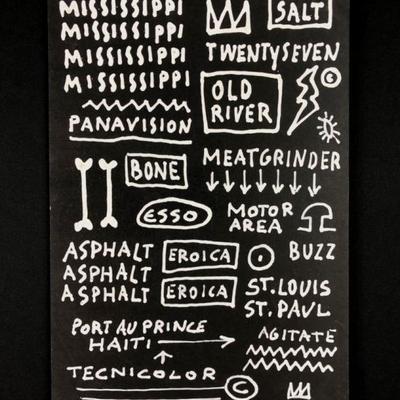 MISSISSIPPI
MISSISSIPPI
MISSISSIPPI
MISSISSIPPI
SALT
TWENTYSEVEN
OLD
RIVER
PANAVISION
BONE
MEATGRINDER
ESSO
MOTOR
AREA
ASPHALT
ASPHALT
ASPHALT
EROICA
EROICA
BUZZ
ST. LOUIS
ST. PAUL
PORT AU PRINCE
HAITI
AGITATE
TECNICOLOR
©